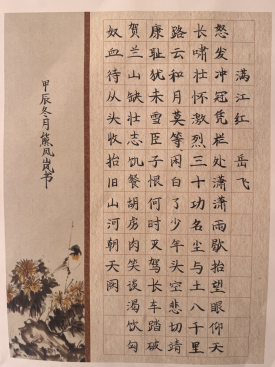 满江红 岳飞
怒发冲冠凭栏处潇潇雨歇抬望眼仰天
长啸壮怀激烈三十功名尘与土八千里
路云和月莫等闲白了少年头空悲切靖
康耻犹未雪臣子恨何时灭驾长车踏破
贺兰山缺壮志饥餐胡虏肉笑谈渴饮匈
奴血待从头收拾旧山河朝天阙
甲辰冬月熊凤岚书